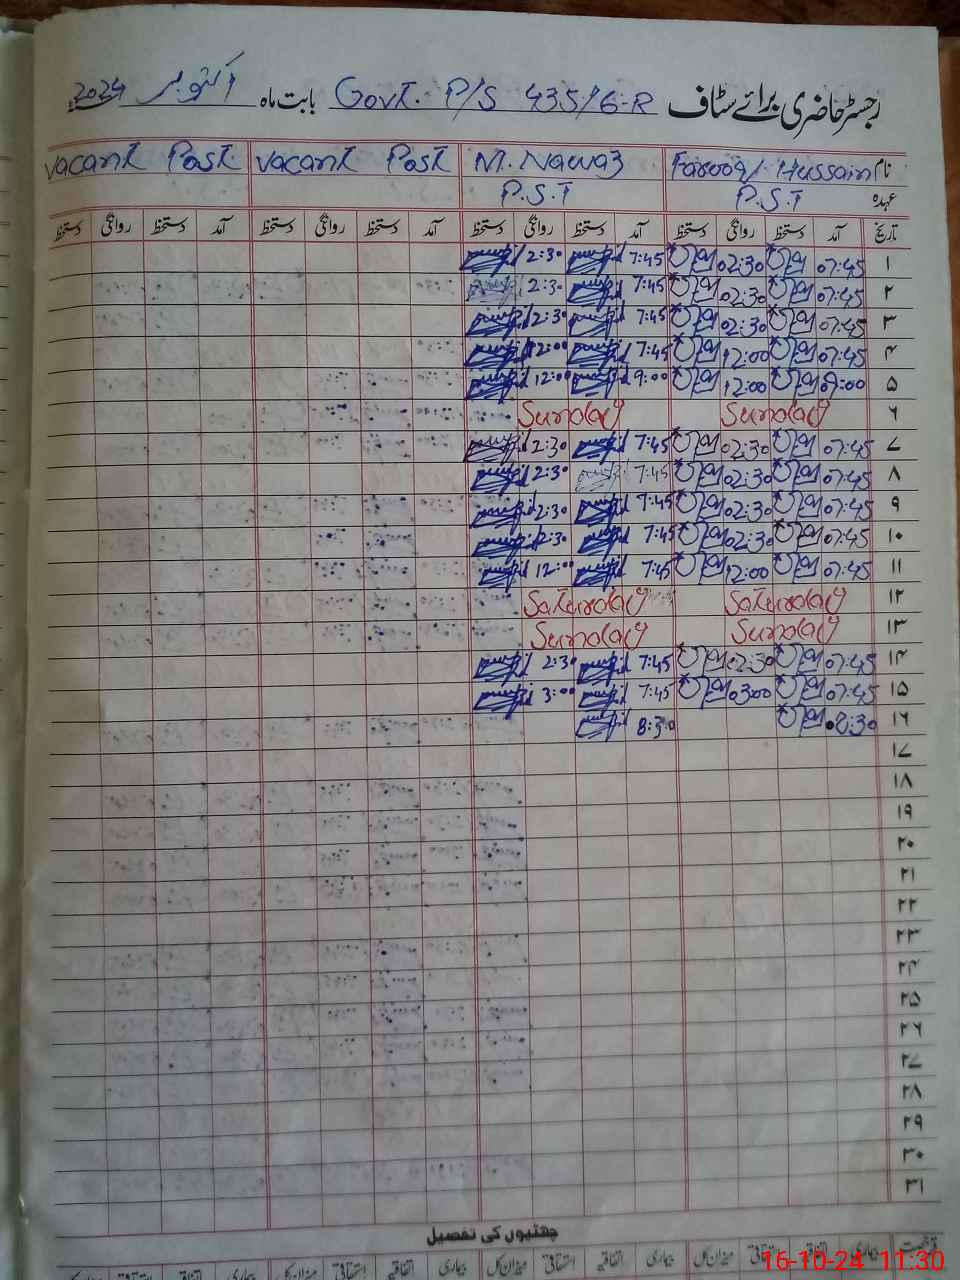 رجسٹر حاضری برائے سٹاف Govt. P/S 435/6-R بابت ماہ اکتوبر 2024
نام Farooq Hussain M. Nawaz Vacant Post Vacant Post
عہدہ P.S.T P.S.T
تاریخ آمد دستخط روانگی دستخط آمد دستخط روانگی دستخط آمد دستخط روانگی دستخط آمد دستخط روانگی دستخط
۱ 07:45 02:30 7:45 2:30
۲ 07:45 02:30 7:45 2:30
۳ 07:45 02:30 7:45 2:30
۴ 07:45 12:00 7:45 12:00
۵ 09:00 12:00 9:00 12:00
۶ Sunday Sunday
۷ 07:45 02:30 7:45 2:30
۸ 07:45 02:30 7:45 2:30
۹ 07:45 02:30 7:45 2:30
۱۰ 07:45 02:30 7:45 2:30
۱۱ 07:45 12:00 7:45 12:00
۱۲ Saturday Saturday
۱۳ Sunday Sunday
۱۴ 07:45 02:30 7:45 2:30
۱۵ 07:45 03:00 7:45 3:00
۱۶ 08:30 8:30
۱۷
۱۸
۱۹
۲۰
۲۱
۲۲
۲۳
۲۴
۲۵
۲۶
۲۷
۲۸
۲۹
۳۰
۳۱
چھٹیوں کی تفصیل
بیماری اتفاقیہ استحقاقی میزان کل بیماری اتفاقیہ استحقاقی میزان کل بیماری اتفاقیہ استحقاقی
16-10-24 11:30